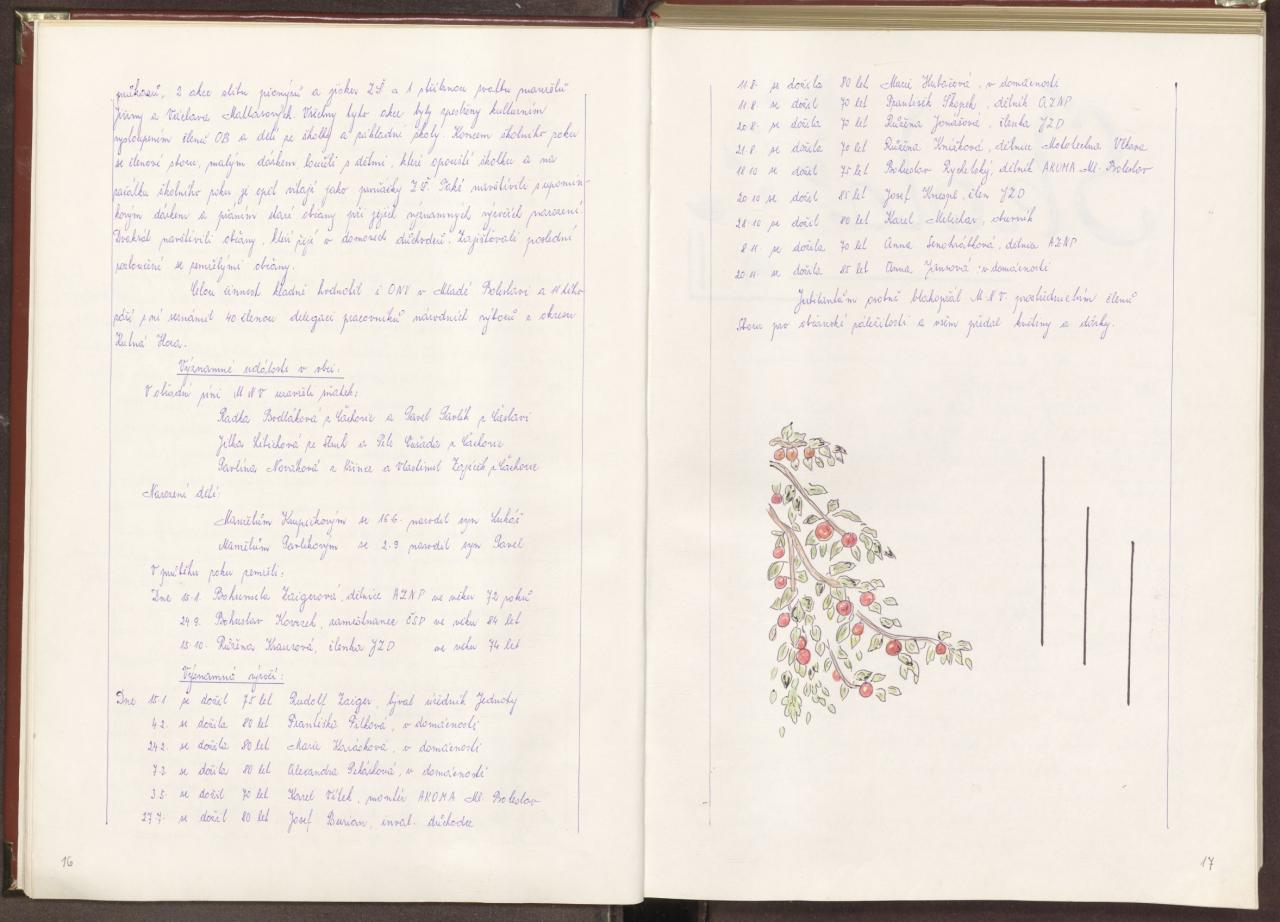 průkazů, 2 akce slibu pionýrů a jisker ZŠ a 1 stříbrnou svatbu manželů
Jiřiny a Václava Všechny tyto akce byly zpestřeny kulturním
vystoupením členů OB a dětí ze školky a základní školy. Koncem školního roku
se členové sboru, malým dárkem loučili s dětmi, které opouští školku a na
začátku školního roku je opět vítají jako prvňáčky ZŠ. Také navštívili s upomín-
kovým dárkem a přáním starší občany při jejich významných výročích narození.
Dvakrát navštívili občany, kteří žijí v domovech důchodců. Zajišťovali poslední
rozloučení se zemřelými občany.
Celou činnost kladně hodnotil i ONV v Mladé Boleslavi a 11. září
s ní seznámil 40 člennou delegaci pracovníků národních výborů z okresu
Kutná Hora.
Významné události v obci:
V obřadní síni MNV uzavřeli sňatek:
Radka Bodláková z Čachovic a Pavel Pavlík z Čáslavi
Jitka ze Strak a Petr z Čachovic
Pavlína Nováková z Křince a Vlastimil Zajíček z Čachovic
Narození dětí:
Manželům Krupičkovým se 16.6. narodil syn Lukáš
Manželům Pavlíkovým se 2.9 narodil syn Pavel
V průběhu roku zemřeli:
Dne 15.1. Bohumila Zaigerová, dělnice AZNP ve věku 72 roků
24.9. Bohuslav zaměstnanec ČSD ve věku 84 let
15.10. Růžena Krausová, členka JZD ve věku 74 let
Významná výročí:
Dne 15.1 se dožil 75 let Rudolf Zaiger, býval. úředník Jednoty
4.2. se dožila 80 let Františka Pilková, v domácnosti
24.2. se dožila 80 let Marie Karásková, v domácnosti
7.2 se dožila 80 let Alexandra v domácnosti
3.5. se dožil 70 let Karel Vítek, montér AKUMA Ml. Boleslav
27.7. se dožil 80 let Josef Burian, inval. důchodce
16
11.8. se dožila 80 let Marie Hubačová, v domácnosti
11.8. se dožil 70 let František Škopek, dělník AZNP
20.8. se dožila 70 let Růžena Jonášová, členka JZD
21.8 se dožila 70 let Růžena Knížková, dělnice Mototechna Vlkava
18.10 se dožil 75 let Bohuslav Rychetský, dělník AKUMA Ml. Boleslav
20.10 se dožil 85 let Josef člen JZD
28.10 se dožil 80 let Karel Melichar,
8.11. se dožila 70 let Anna dělnice AZNP
20.11. se dožila 85 let Anna Jansová v domácnosti
Jubilantům osobně blahopřál MNV prostřednictvím členů
Sboru pro občanské záležitosti a všem předal květiny a dárky.
17